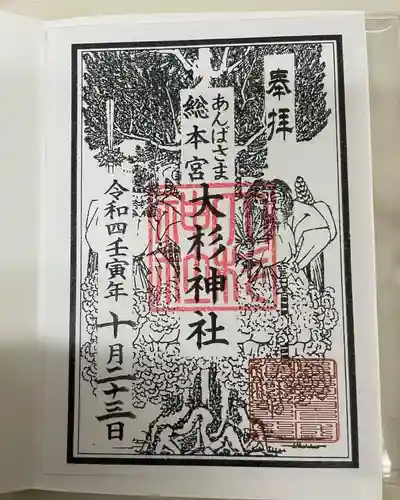 奉拝
あんばさま
総本宮
大杉神社
令和四壬寅年
十月二十三日